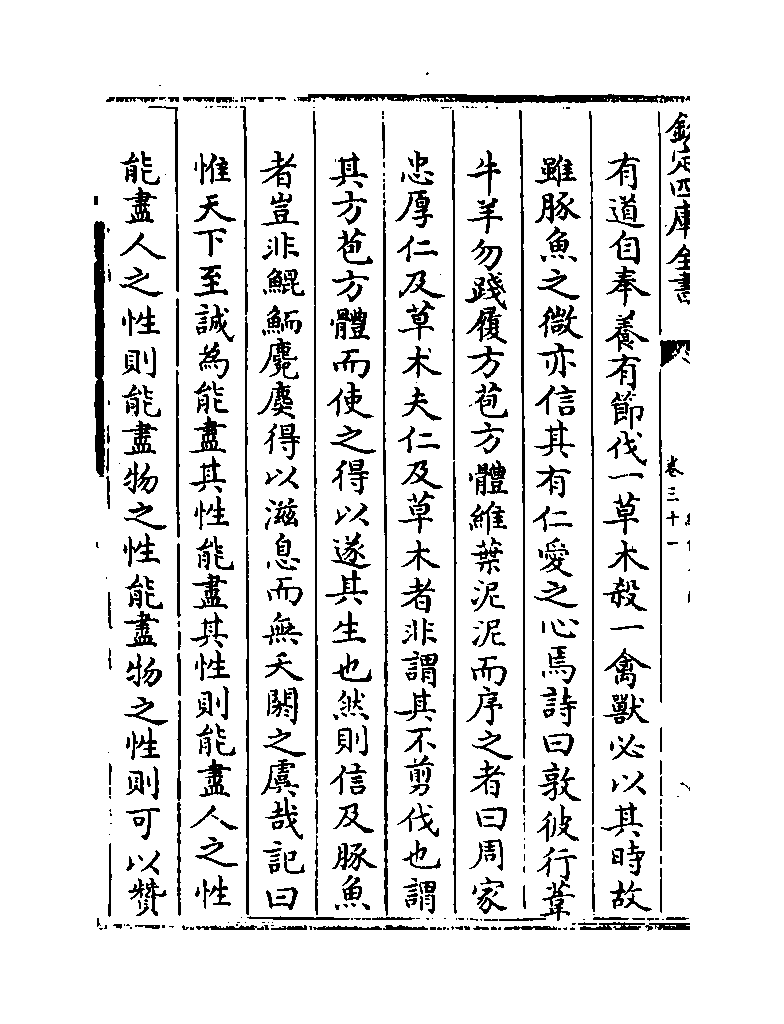 欽定四庫全書
卷三十一
有道自奉養有節伐一草木殺一禽獸必以其時故
雖豚魚之微亦信其有仁愛之心焉詩曰敦彼行葦
牛羊勿踐履方苞方體維葉泥泥而序之者曰周家
忠厚仁及草木夫仁及草木者非謂其不剪伐也謂
其方苞方體而使之得以遂其生也然則信及豚魚
者豈非鯤鮞麑麌得以滋息而無夭閼之虞哉記曰
惟天下至誠為能盡其性能盡其性則能盡人之性
能盡人之性則能盡物之性能盡物之性則可以贊